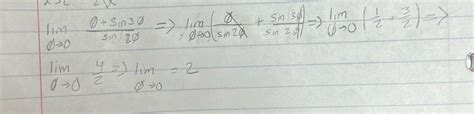 lim θ→0 (θ + sin3θ)/(sin 2θ) => lim θ→0 (θ/sin2θ + sin3θ/sin2θ) => lim θ→0 (1/2 + 3/2) =>
lim θ→0 4/2 => lim θ→0 = 2